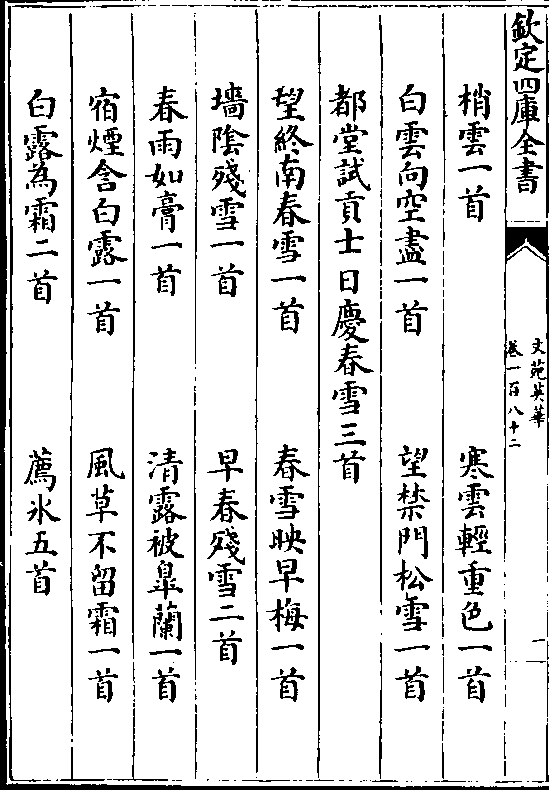 欽定四庫全書
文苑英華
卷一百八十二
一
梢雲一首 寒雲輕重色一首
白雲向空盡一首 望禁門松雪一首
都堂試貢士日慶春雪三首
望終南春雪一首 春雪映早梅一首
墻陰殘雪一首 早春殘雪二首
春雨如膏一首 清露被臯蘭一首
宿煙含白露一首 風草不留霜一首
白露為霜二首 薦氷五首